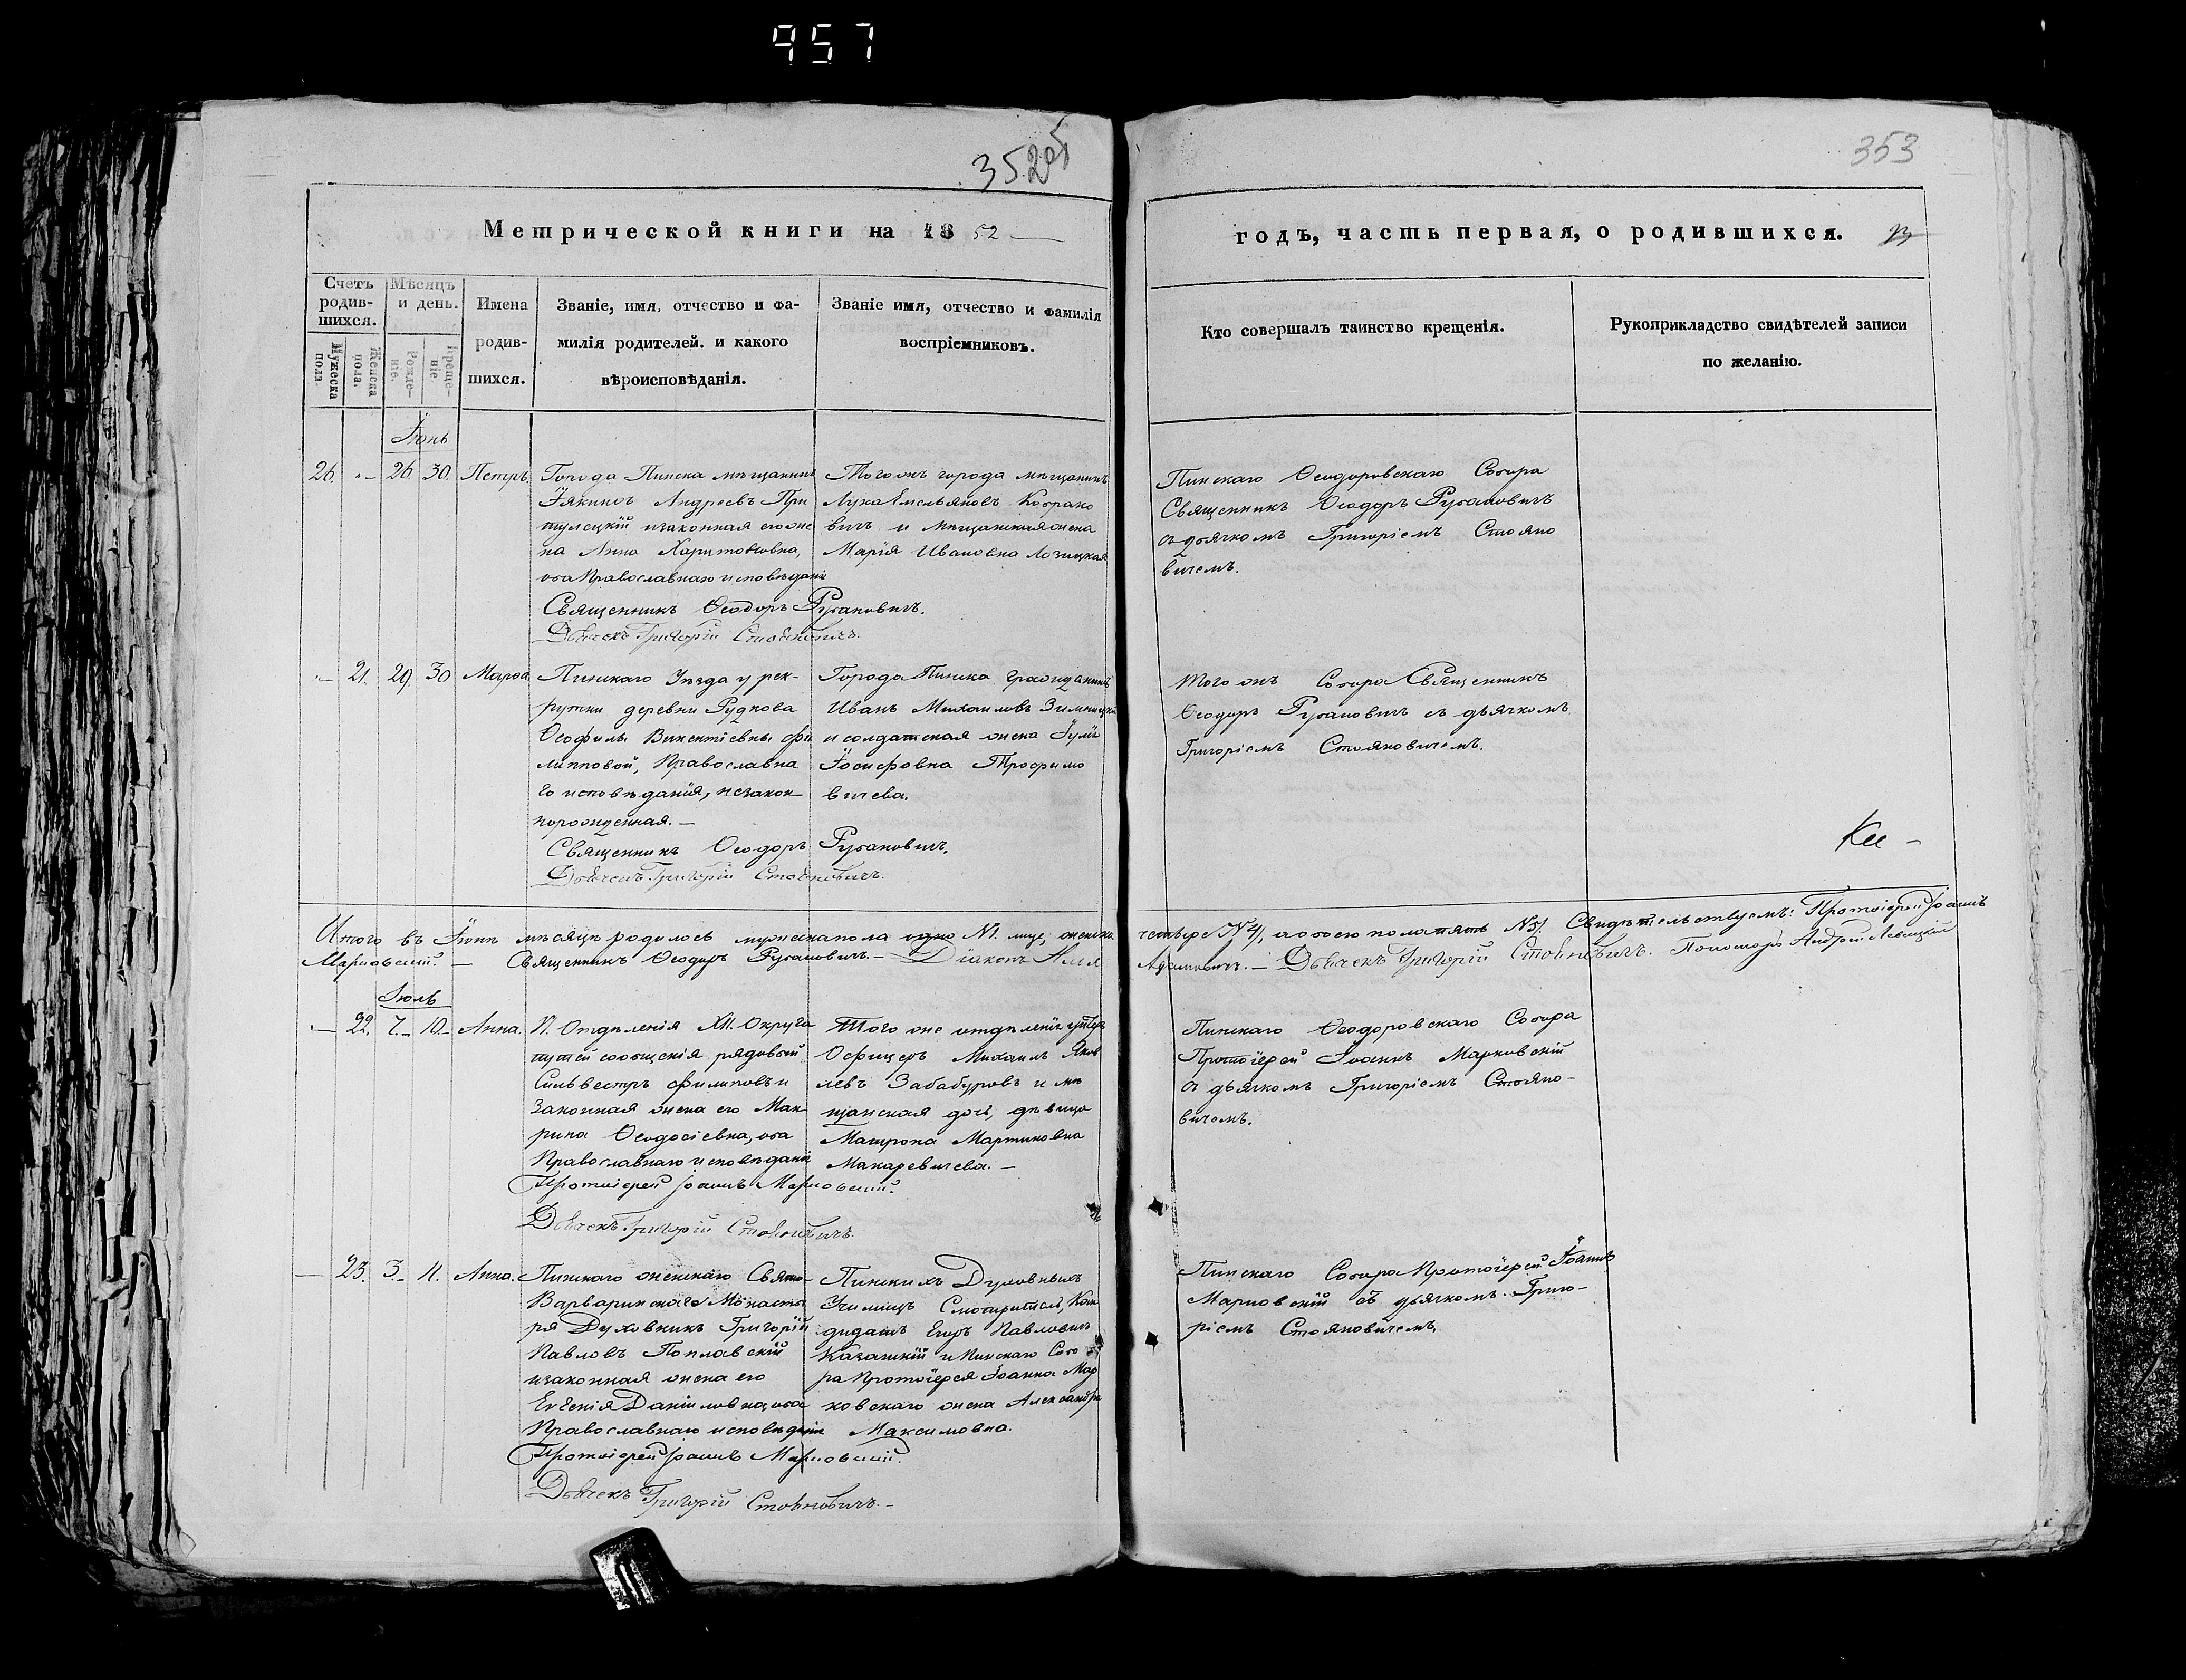 957
352об
353
Метрической книги на 1852
годъ, часть первая, о родившихся.
Счетъ родив-
шихся.
Мужеска пола.
Женска пола.
Мѣсяцъ
и день.
Рожде-
ніе.
Креще-
ніе.
Имена
родив-
шихся.
Званіе, имя, отчество и фа-
милія родителей. и какого
вѣроисповѣданія.
Званіе имя, отчество и фамилія
воспріемниковъ.
Кто совершалъ таинство крещенія.
Рукоприкладство свидѣтелей записи
по желанію.
Іюнь
26. "– 26. 30. Петръ.
Города Пинска мѣщанинъ
Іякинѳъ Андреевъ При
тулецкій и законная его же
на Анна Харитоновна,
оба Православнаго исповѣданія
Священникъ Ѳеодоръ Рубановичъ.
Дьячекъ Григорій Стояновичъ.
Того жъ города мѣщанинъ
Лука Емельяновъ Кобрано
вичъ и мѣщанская жена
Марія Ивановна Лозицкая
Пинскаго Ѳеодоровскаго Собора
Священникъ Ѳеодоръ Рубановичъ
съ дьячкомъ Григоріемъ Стояно
вичемъ.
"– 21. 29. 30 Марѳа.
Пинскаго Уѣзда у рек-
рутки деревни Рудкова
Ѳеофилы Викентіевны Фи
липповой, Православна
го исповѣданія, незакон-
норожденная. –
Священникъ Ѳеодоръ Рубановичъ.
Дьячекъ Григорій Стояновичъ.
Города Пинска гражданинъ
Иванъ Михаиловъ
и солдатская жена Іулія
Іосифовна Трофимо
вичева.
Того жъ Собора Священникъ
Ѳеодоръ Рубановичъ съ дьячкомъ
Григоріемъ Стояновичемъ.
Итого въ Іюнѣ мѣсяцѣ родилось мужеска пола одно №1. лице, женска
четыре №4, а обоего пола пять №5. Свидѣтельствуемъ: Протоіерей Іоаннъ
Марковскій. – Священникъ Ѳеодоръ Рубановичъ. – Діаконъ Илія
Адамовичъ. – Дьячекъ Григорій Стояновичъ. Пономарь Андрей Левицкій
Іюль
– 22. 7. – 10. – Анна.
II. Отдѣленія XII. Округа
путей сообщенія рядовый
Сильвестръ Филиповъ и
законная жена его Мак
рина Ѳеодосіевна, оба
Православнаго исповѣданія
Протоіерей Іоаннъ Марковскій.
Дьячекъ Григорій Стояновичъ.
Того же отдѣленія унтеръ
Офицеръ Михаилъ Яков
левъ Забабуровъ и мѣ
щанская дочь, дѣвица
Матрона Мартиновна
Макаревичева. –
Пинскаго Ѳеодоровскаго Собора
Протоіерей Іоаннъ Марковскій
съ дьячкомъ Григоріемъ Стояно-
вичемъ.
– 23. 3. – 11. Анна.
Пинскаго женскаго Свято-
Варваринскаго Монасты
ря Духовникъ Григорій
Павловъ Поплавскій
и законная жена его
Евгенія Даніиловна, оба
Православнаго исповѣданія
Протоіерей Іоаннъ Марковскій.
Дьячекъ Григорій Стояновичъ. –
Пинскихъ Духовныхъ
Училищъ Смотритель, Кан
дидатъ Егоръ Павловичъ
и Пинскаго Собо
ра Протоіерея Іоанна Мар
ковскаго жена Александра
Максимовна.
Пинскаго Собора Протоіерей Іоаннъ
Марковскій съ дьячкомъ Григо-
ріемъ Стояновичемъ.